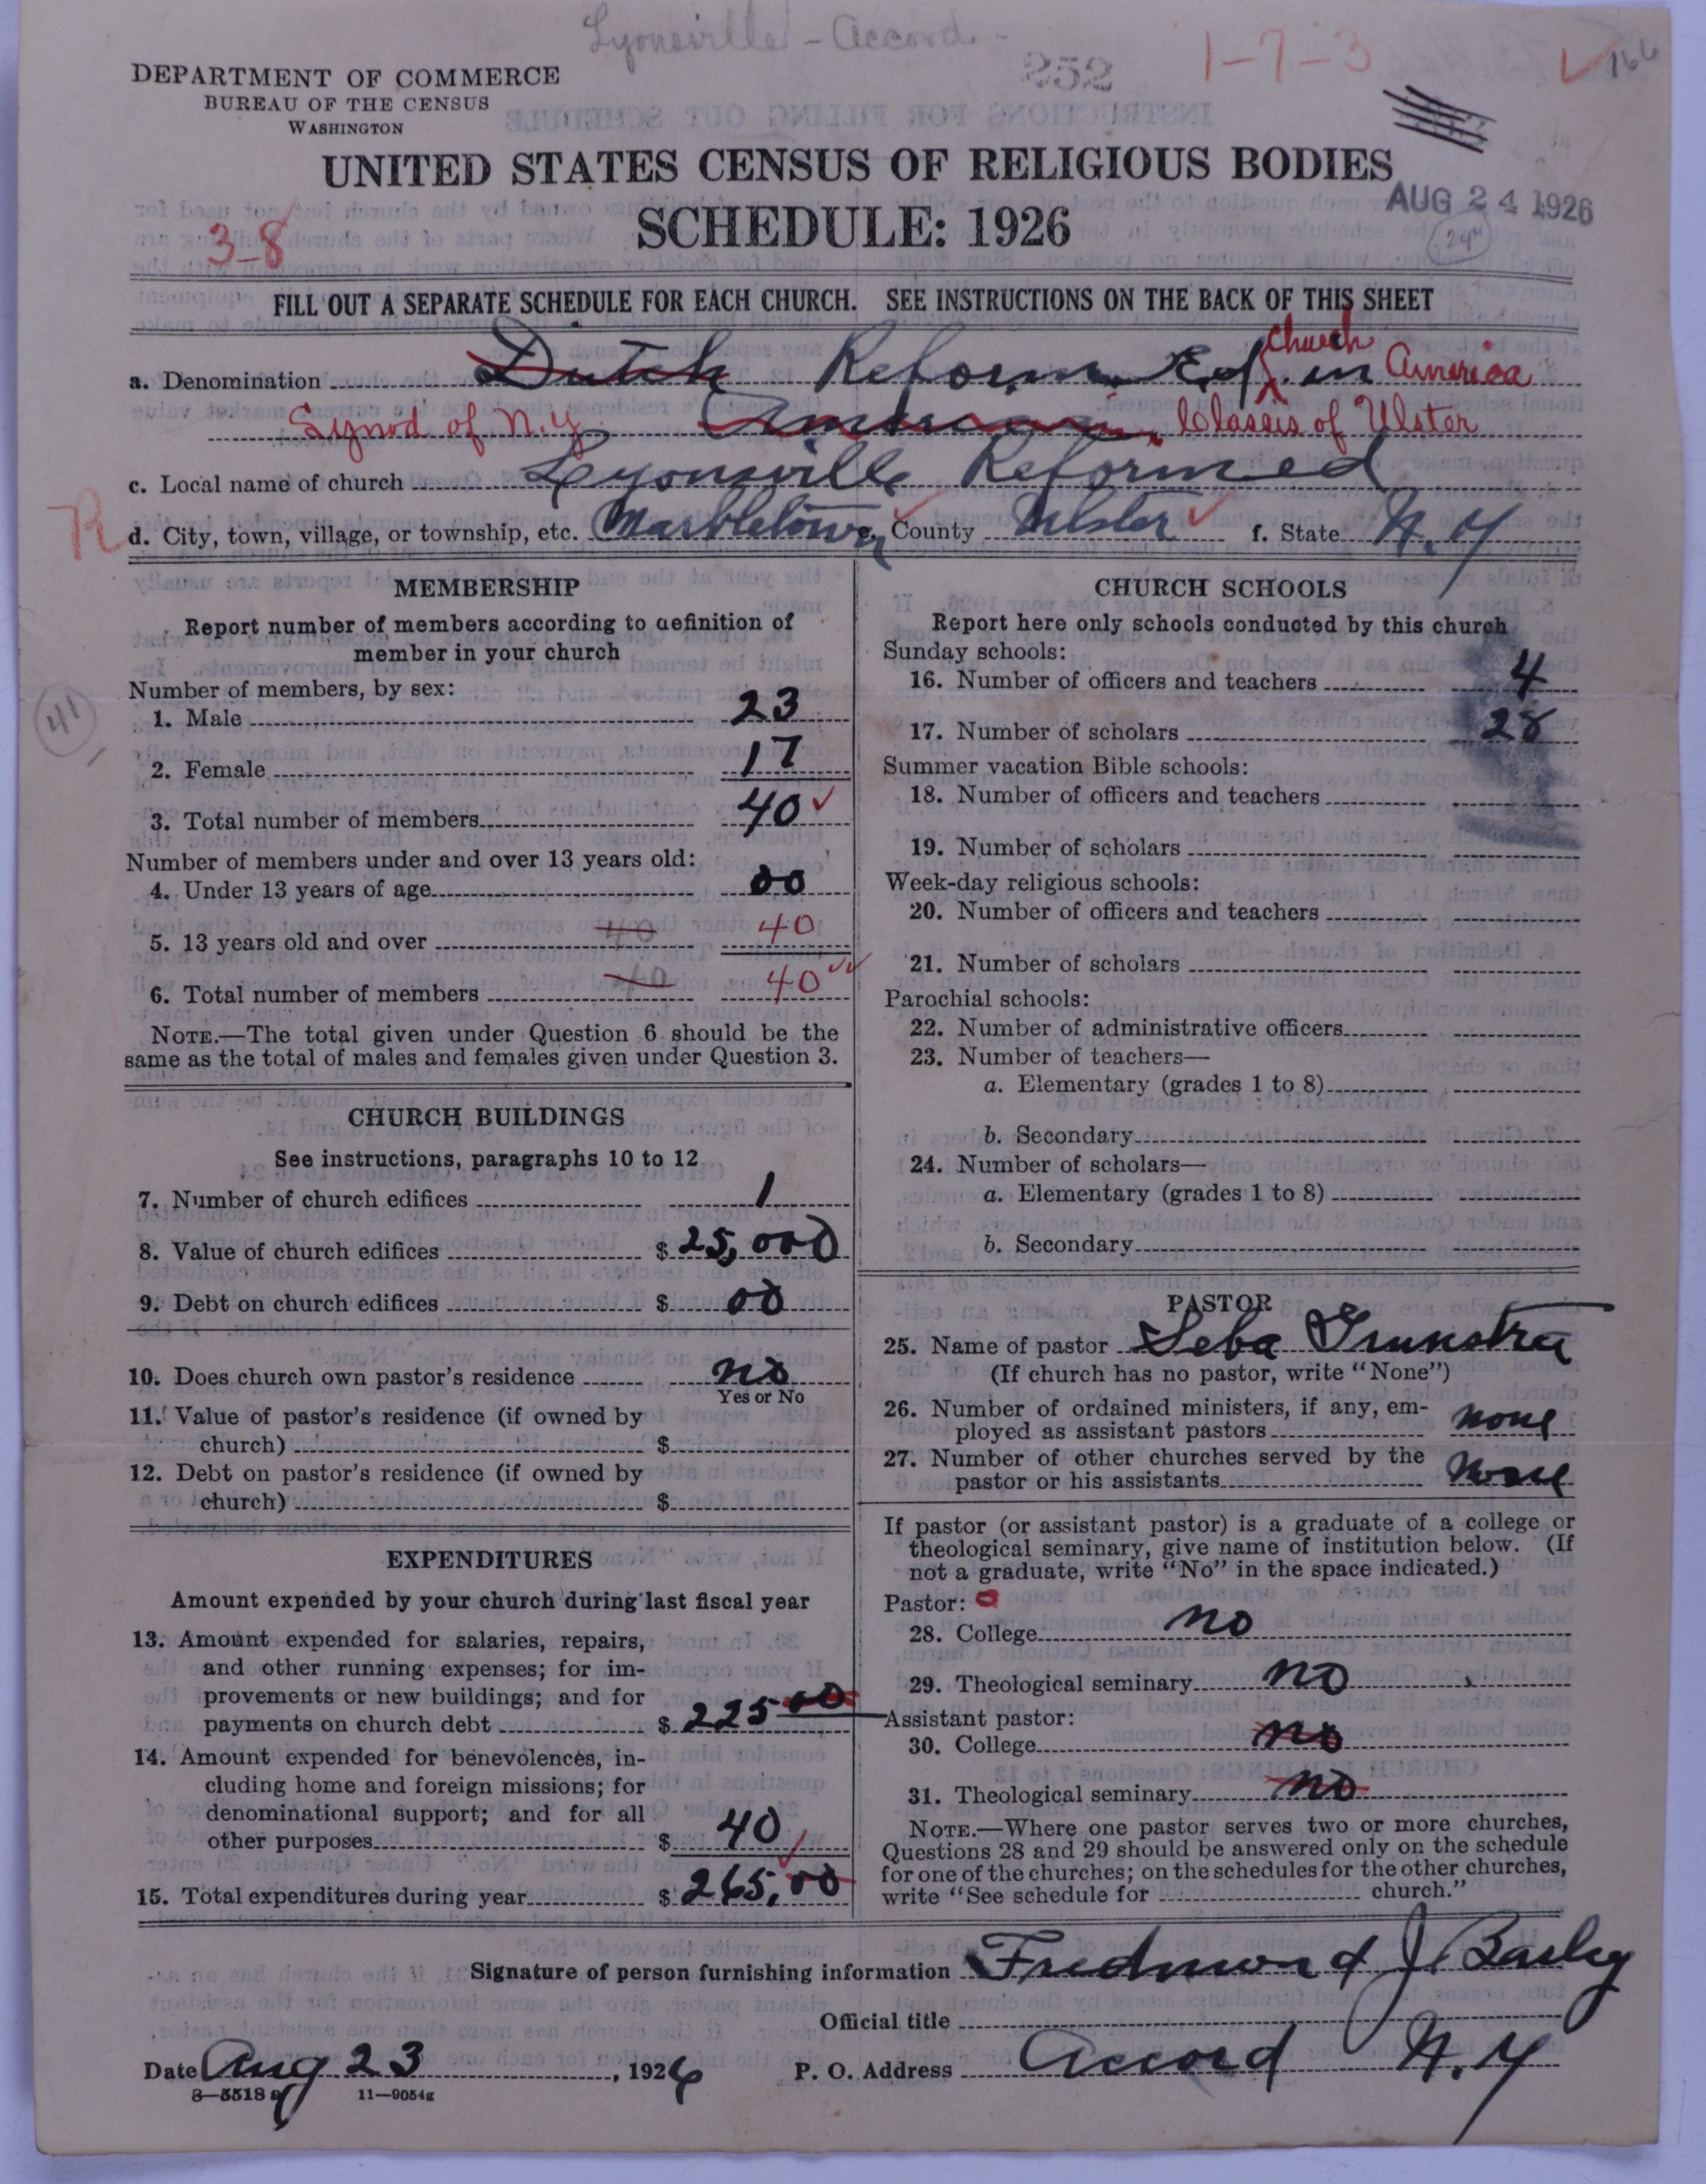 Lyonsville - Accord -
252
1-7-3
166
DEPARTMENT OF COMMERCE
BUREAU OF THE CENSUS
WASHINGTON
UNITED STATES CENSUS OF RELIGIOUS BODIES
SCHEDULE: 1926
AUG 24 1926
24"
3-8
FILL OUT A SEPARATE SCHEDULE FOR EACH CHURCH. SEE INSTRUCTIONS ON THE BACK OF THIS SHEET
a. Denomination Dutch Reform Ed church in America
Synod of N.Y. American Classis of Ulster
c. Local name of church Lyonsville Reformed
R d. City, town, village, or township, etc. Marbletown e. County Ulster f. State N.Y
MEMBERSHIP
Report number of members according to definition of
member in your church
Number of members, by sex:
41
1. Male 23
2. Female 17
3. Total number of members 40
Number of members under and over 13 years old:
4. Under 13 years of age 00
5. 13 years old and over 40 40
6. Total number of members 40 40
NOTE.—The total given under Question 6 should be the
same as the total of males and females given under Question 3.
CHURCH BUILDINGS
See instructions, paragraphs 10 to 12
7. Number of church edifices 1
8. Value of church edifices $ 25,000
9. Debt on church edifices $ 00
10. Does church own pastor's residence no
Yes or No
11. Value of pastor's residence (if owned by
church) $
12. Debt on pastor's residence (if owned by
church) $
EXPENDITURES
Amount expended by your church during last fiscal year
13. Amount expended for salaries, repairs,
and other running expenses; for im-
provements or new buildings; and for
payments on church debt $ 225 00
14. Amount expended for benevolences, in-
cluding home and foreign missions; for
denominational support; and for all
other purposes $ 40
15. Total expenditures during year $ 265,00
CHURCH SCHOOLS
Report here only schools conducted by this church
Sunday schools:
16. Number of officers and teachers 4
17. Number of scholars 28
Summer vacation Bible schools:
18. Number of officers and teachers
19. Number of scholars
Week-day religious schools:
20. Number of officers and teachers
21. Number of scholars
Parochial schools:
22. Number of administrative officers
23. Number of teachers—
a. Elementary (grades 1 to 8)
b. Secondary
24. Number of scholars—
a. Elementary (grades 1 to 8)
b. Secondary
PASTOR
25. Name of pastor Seba Grunstra
(If church has no pastor, write "None")
26. Number of ordained ministers, if any, em-
ployed as assistant pastors none
27. Number of other churches served by the
pastor or his assistants None
If pastor (or assistant pastor) is a graduate of a college or
theological seminary, give name of institution below. (If
not a graduate, write "No" in the space indicated.)
Pastor: 0
28. College no
29. Theological seminary no
Assistant pastor:
30. College no
31. Theological seminary no
NOTE.—Where one pastor serves two or more churches,
Questions 28 and 29 should be answered only on the schedule
for one of the churches; on the schedules for the other churches,
write "See schedule for church."
Signature of person furnishing information Fredmond J. Basley
Official title
Date Aug 23, 1926 P. O. Address Accord N.Y
8—5518 a 11—9054g